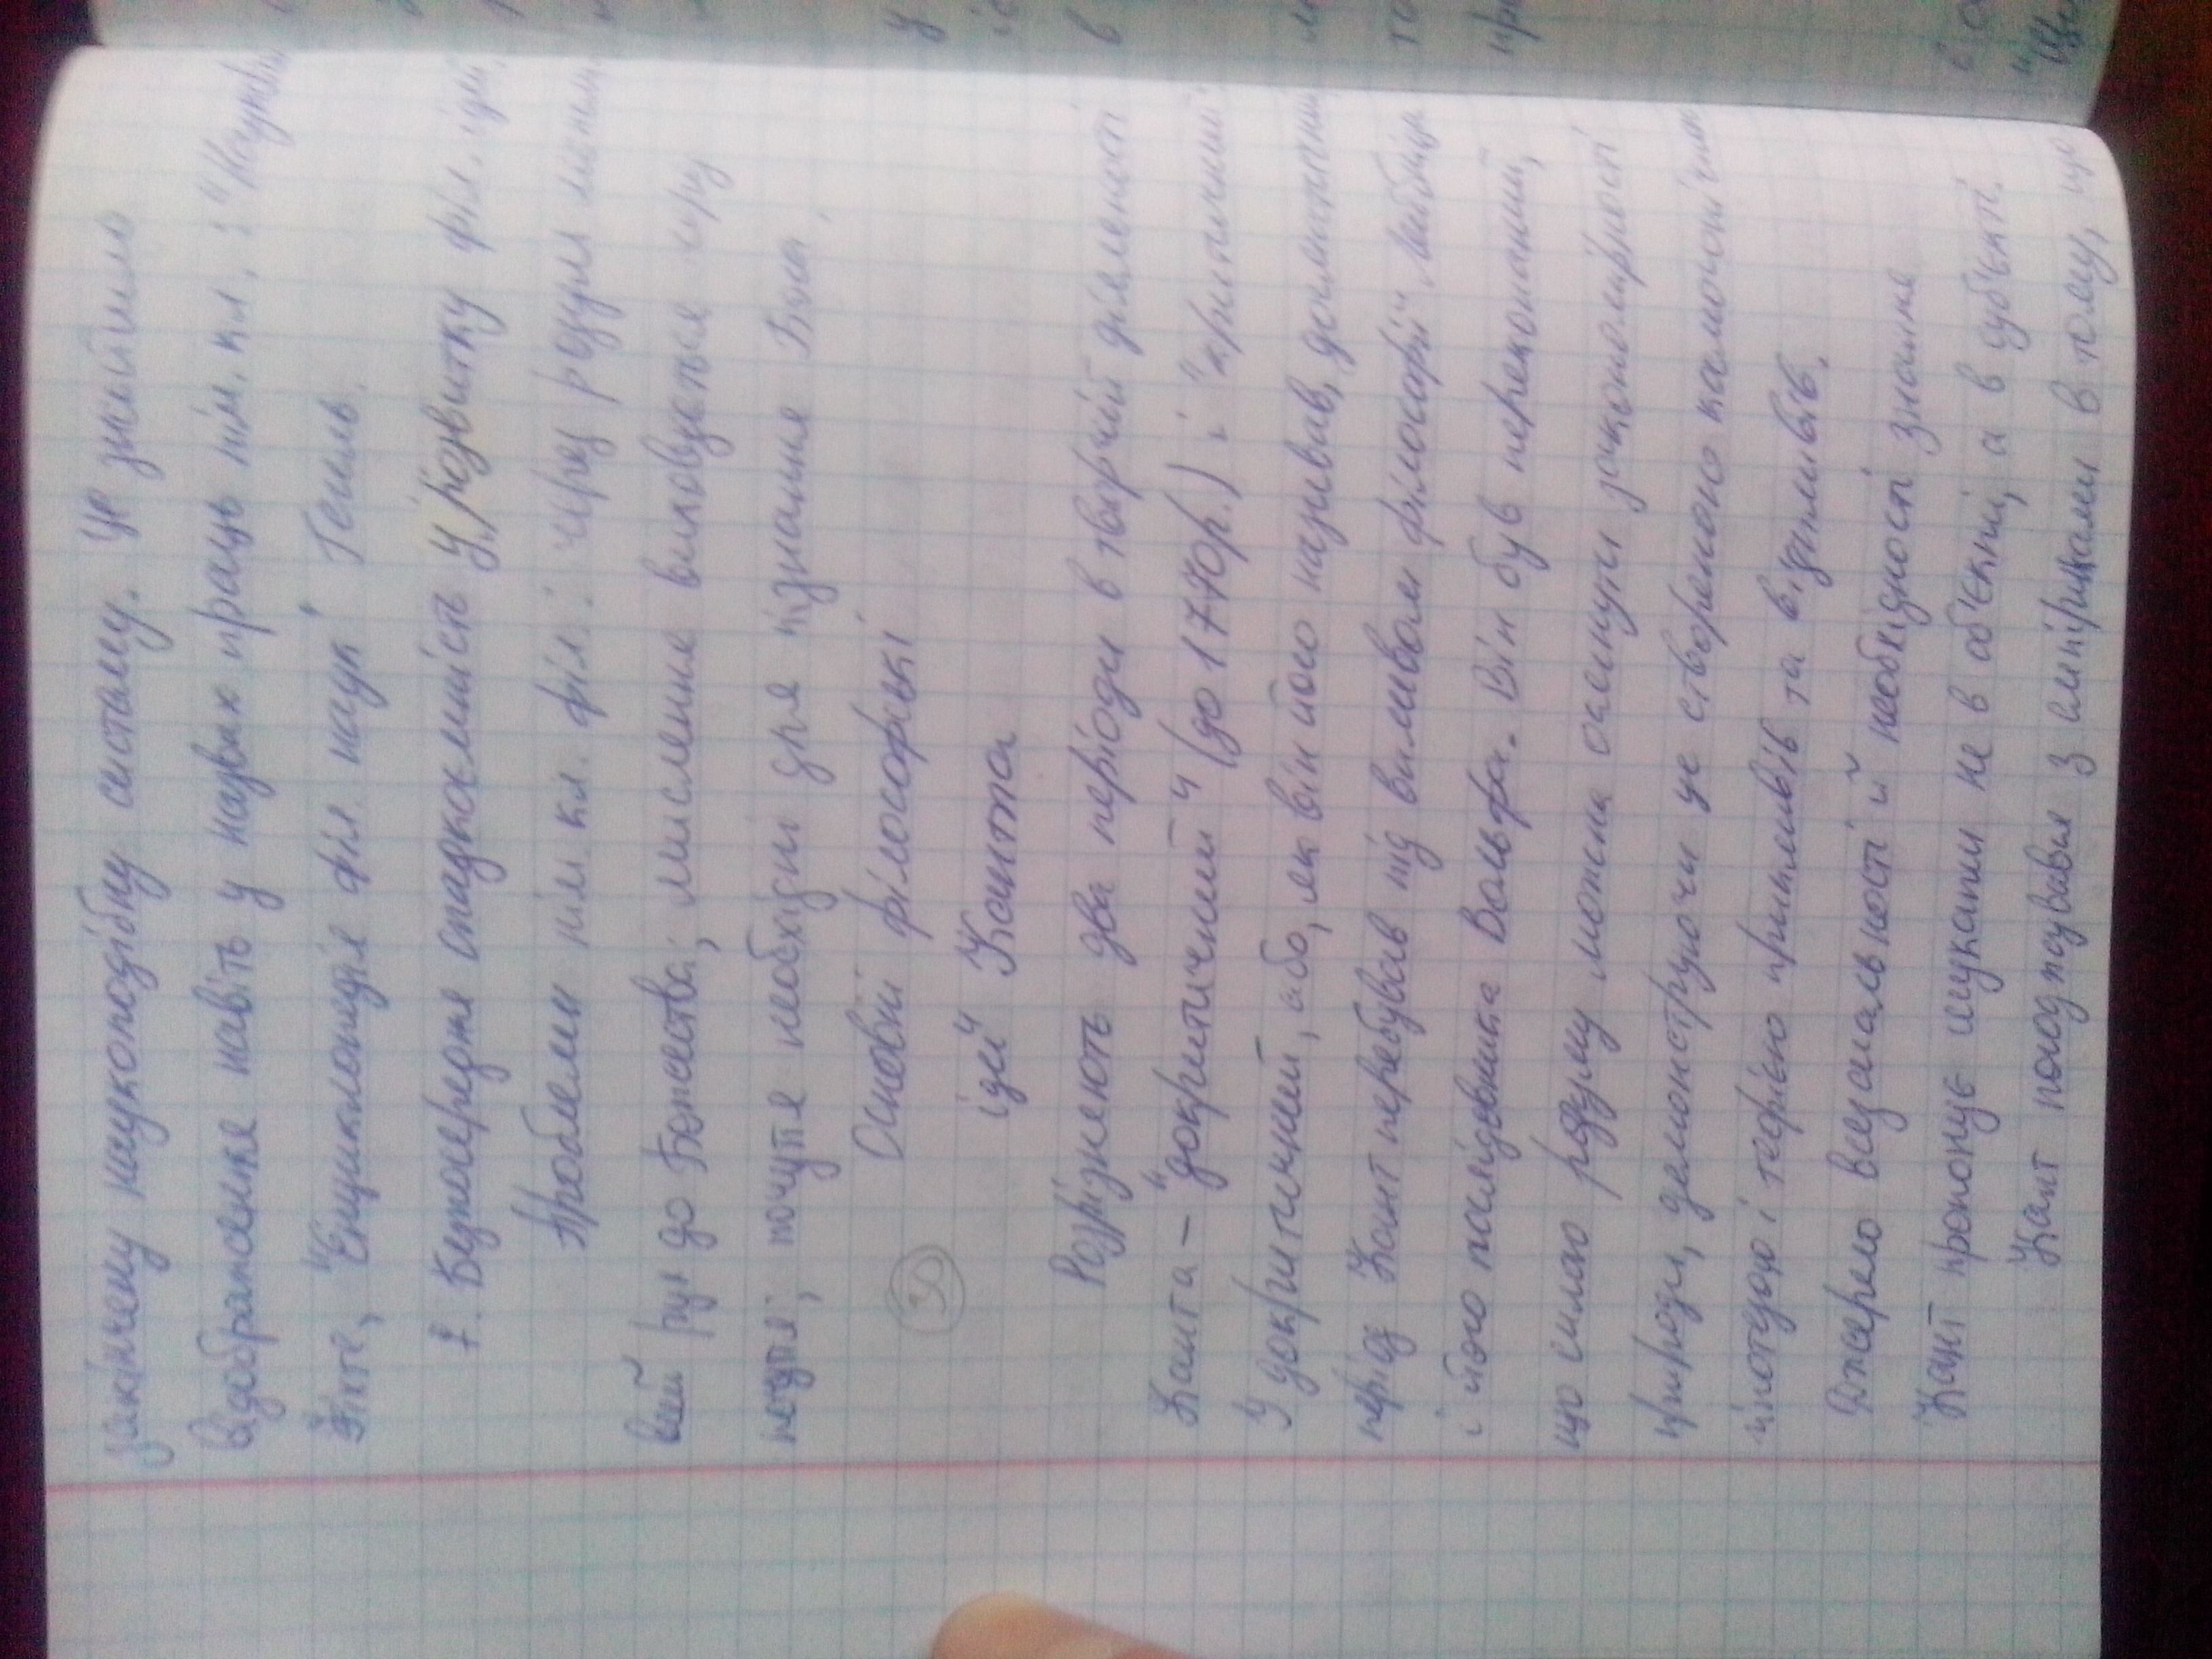 закінчену наукоподібну систему. Це знайшло
відображення навіть у назвах праць нім. кл. :
Фіхте, "Енциклопедія філ. наук" Гегель.
7. Безпосередня спадкоємність у розвитку філ. ідей.
Проблеми нім. кл. філ. : через розум
рух до Божества; мислення виховується через
почуття; почуття необхідні для пізнання Бога.
Основні філософські
30
ідеї Канта
Розрізняють два періоди в творчій діяльності
Канта – "докритичний" (до 1770р.) і "критичний"
У докритичний, або, як він його називав, догматичний
період Кант перебував під впливом філософії Лейбніца
і його послідовника Вольфа. Він був переконаний,
що силою розуму можна осягнути закономірності
природи, демонструючи це створеною космогонічною
гіпотезою і теорією припливів та відпливів.
Джерело всезагальності й необхідності знання
Кант пропонує шукати не в об'єкті, а в суб'єкті.
Кант погоджувався з емпіриками в тому, що